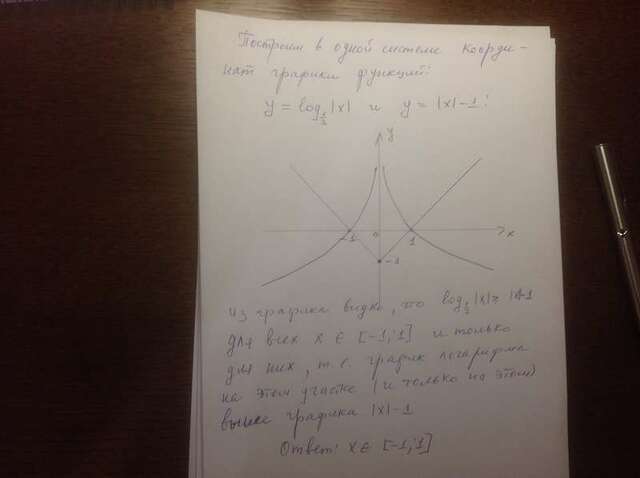 Построим в одной системе коорди-
нат графики функций:
y = log_{1/2} |x| и y = |x| - 1:
y
-1 0 1 x
-1
Из графика видно, что log_{1/2} |x| ≥ |x|-1
для всех x ∈ [-1; 1] и только
для них, т.е. график логарифма
на этом участке (и только на этом)
выше графика |x| - 1
Ответ: x ∈ [-1; 1]